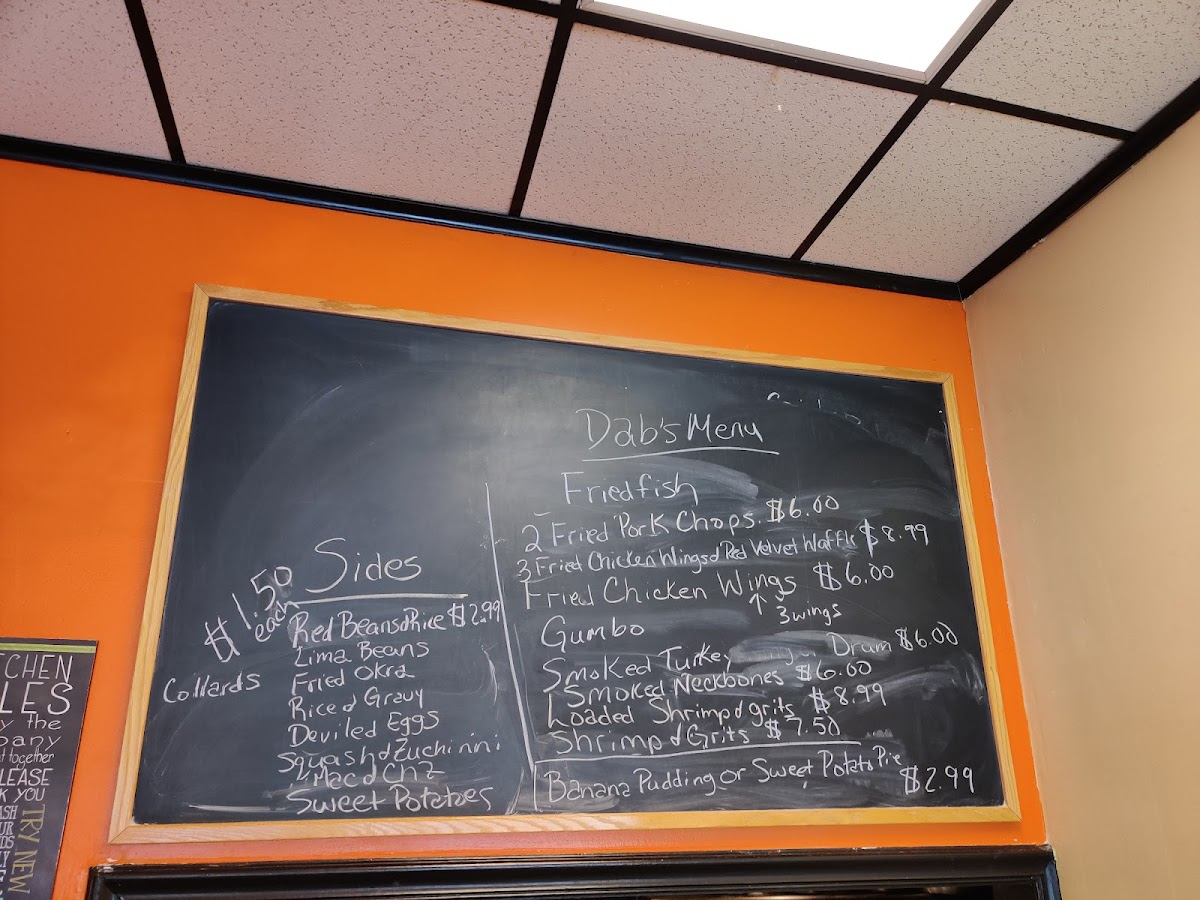 Dab's Menu
Fried fish
2 Fried Pork Chops $6.00
3 Fried Chicken Wings & Red Velvet Waffle $8.99
Fried Chicken Wings $6.00
↑ 3 wings
Gumbo
Smoked Turkey Drum $6.00
Smoked Neckbones $6.00
Loaded Shrimp & grits $8.99
Shrimp & Grits $7.50
Banana Pudding or Sweet Potato Pie $2.99
Sides
$1.50 each
Red Beans & Rice $2.99
Lima Beans
Collards
Fried Okra
Rice & Gravy
Deviled Eggs
Squash & Zuchinini
Mac & Chz
Sweet Potatoes
TCHEN
LES
y the
pany
t together
LEASE
K YOU
TRY NEW